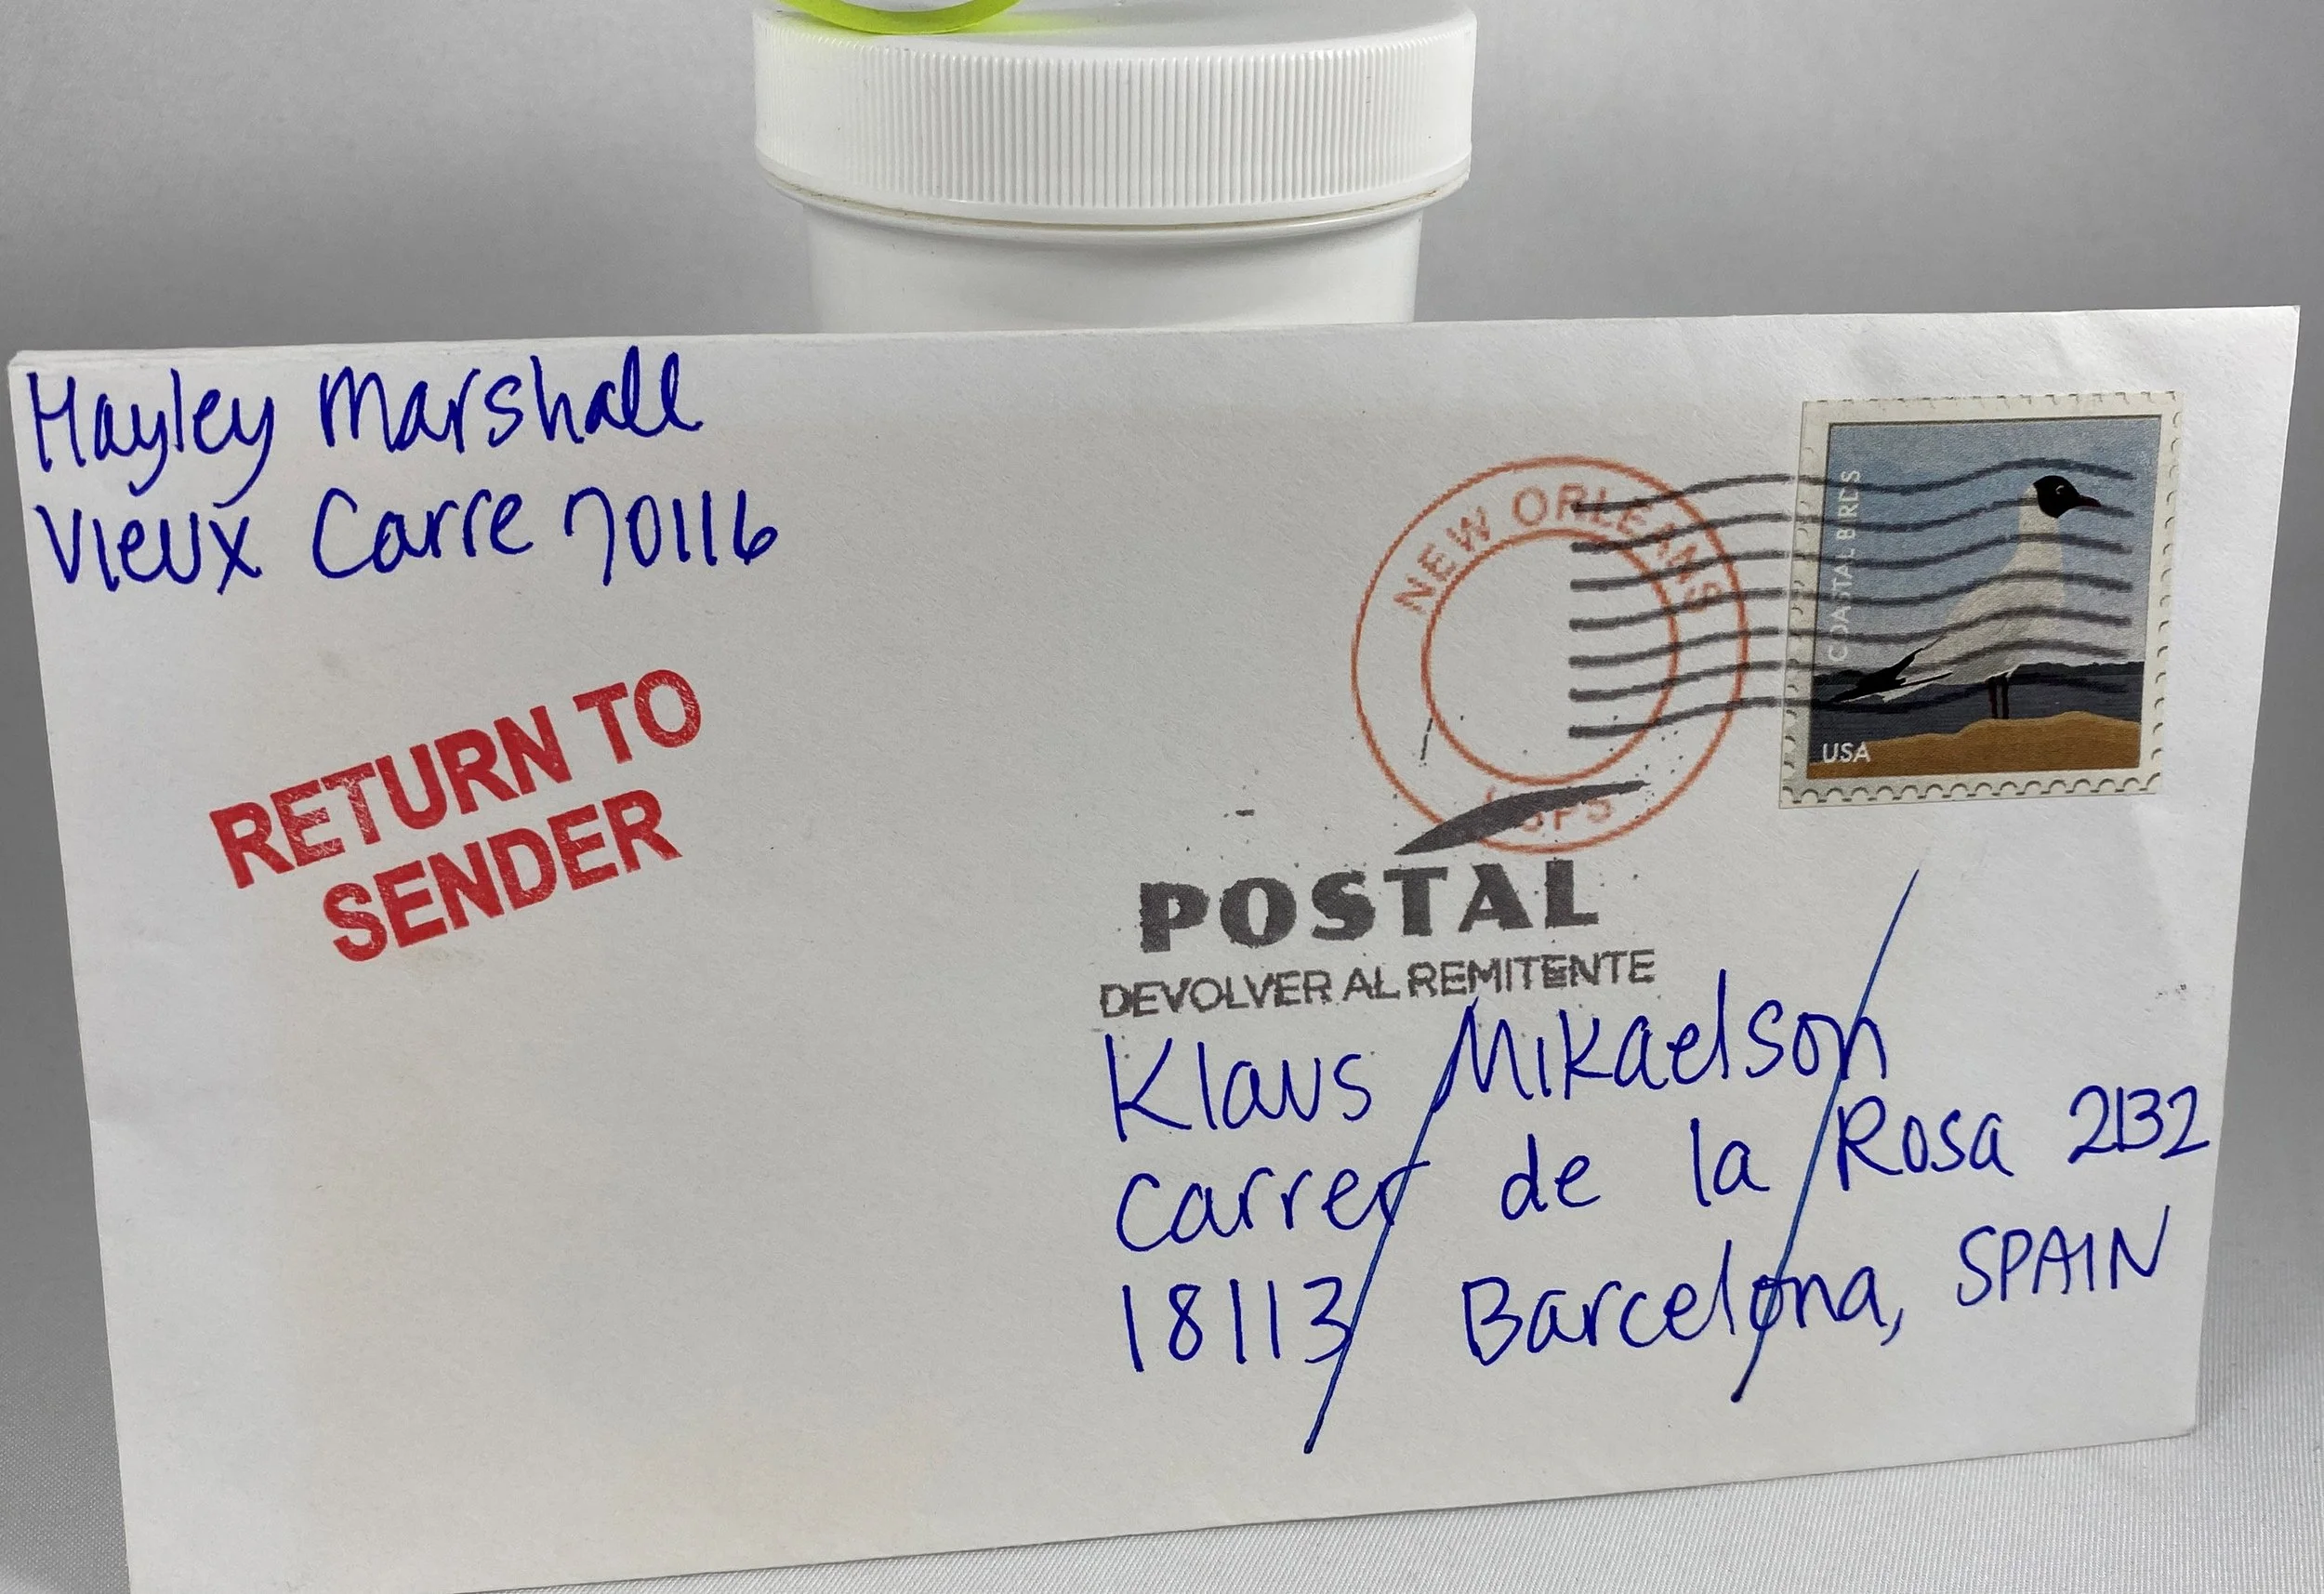 Hayley Marshall
Vieux Carre 70116
RETURN TO
SENDER
NEW ORLEANS
USPS
COASTAL BIRDS
USA
POSTAL
DEVOLVER AL REMITENTE
Klaus Mikaelson
Carrer de la Rosa 2132
18113 Barcelona, SPAIN